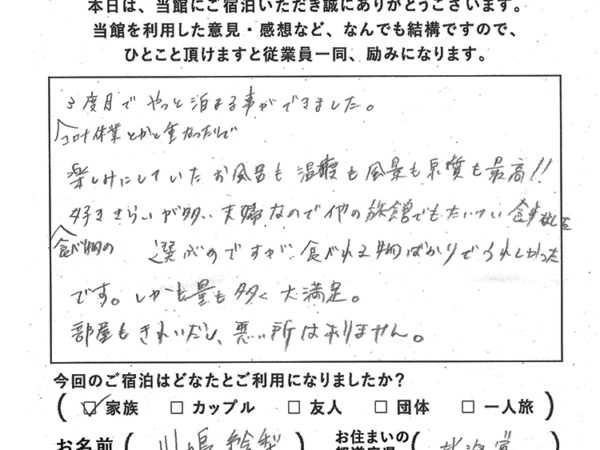 本日は、当館にご宿泊いただき誠にありがとうございます。
当館を利用した意見・感想など、なんでも結構ですので、
ひとこと頂けますと従業員一同、励みになります。
3度目でやっと泊まる事ができました。
コロナ休業とかと重なったりで
楽しみにしていたお風呂も温度も風景も泉質も最高!!
好ききらいが多い夫婦なので他の旅館でもだいたい食事なしを
食べ物の
選ぶのですが、食べれる物ばかりでうれしかった
です。しかも量も多く大満足。
部屋もきれいだし、悪い所はありません。
今回のご宿泊はどなたとご利用になりましたか?
( ☑ 家族 □ カップル □ 友人 □ 団体 □ 一人旅 )
お名前 ( お住まいの (